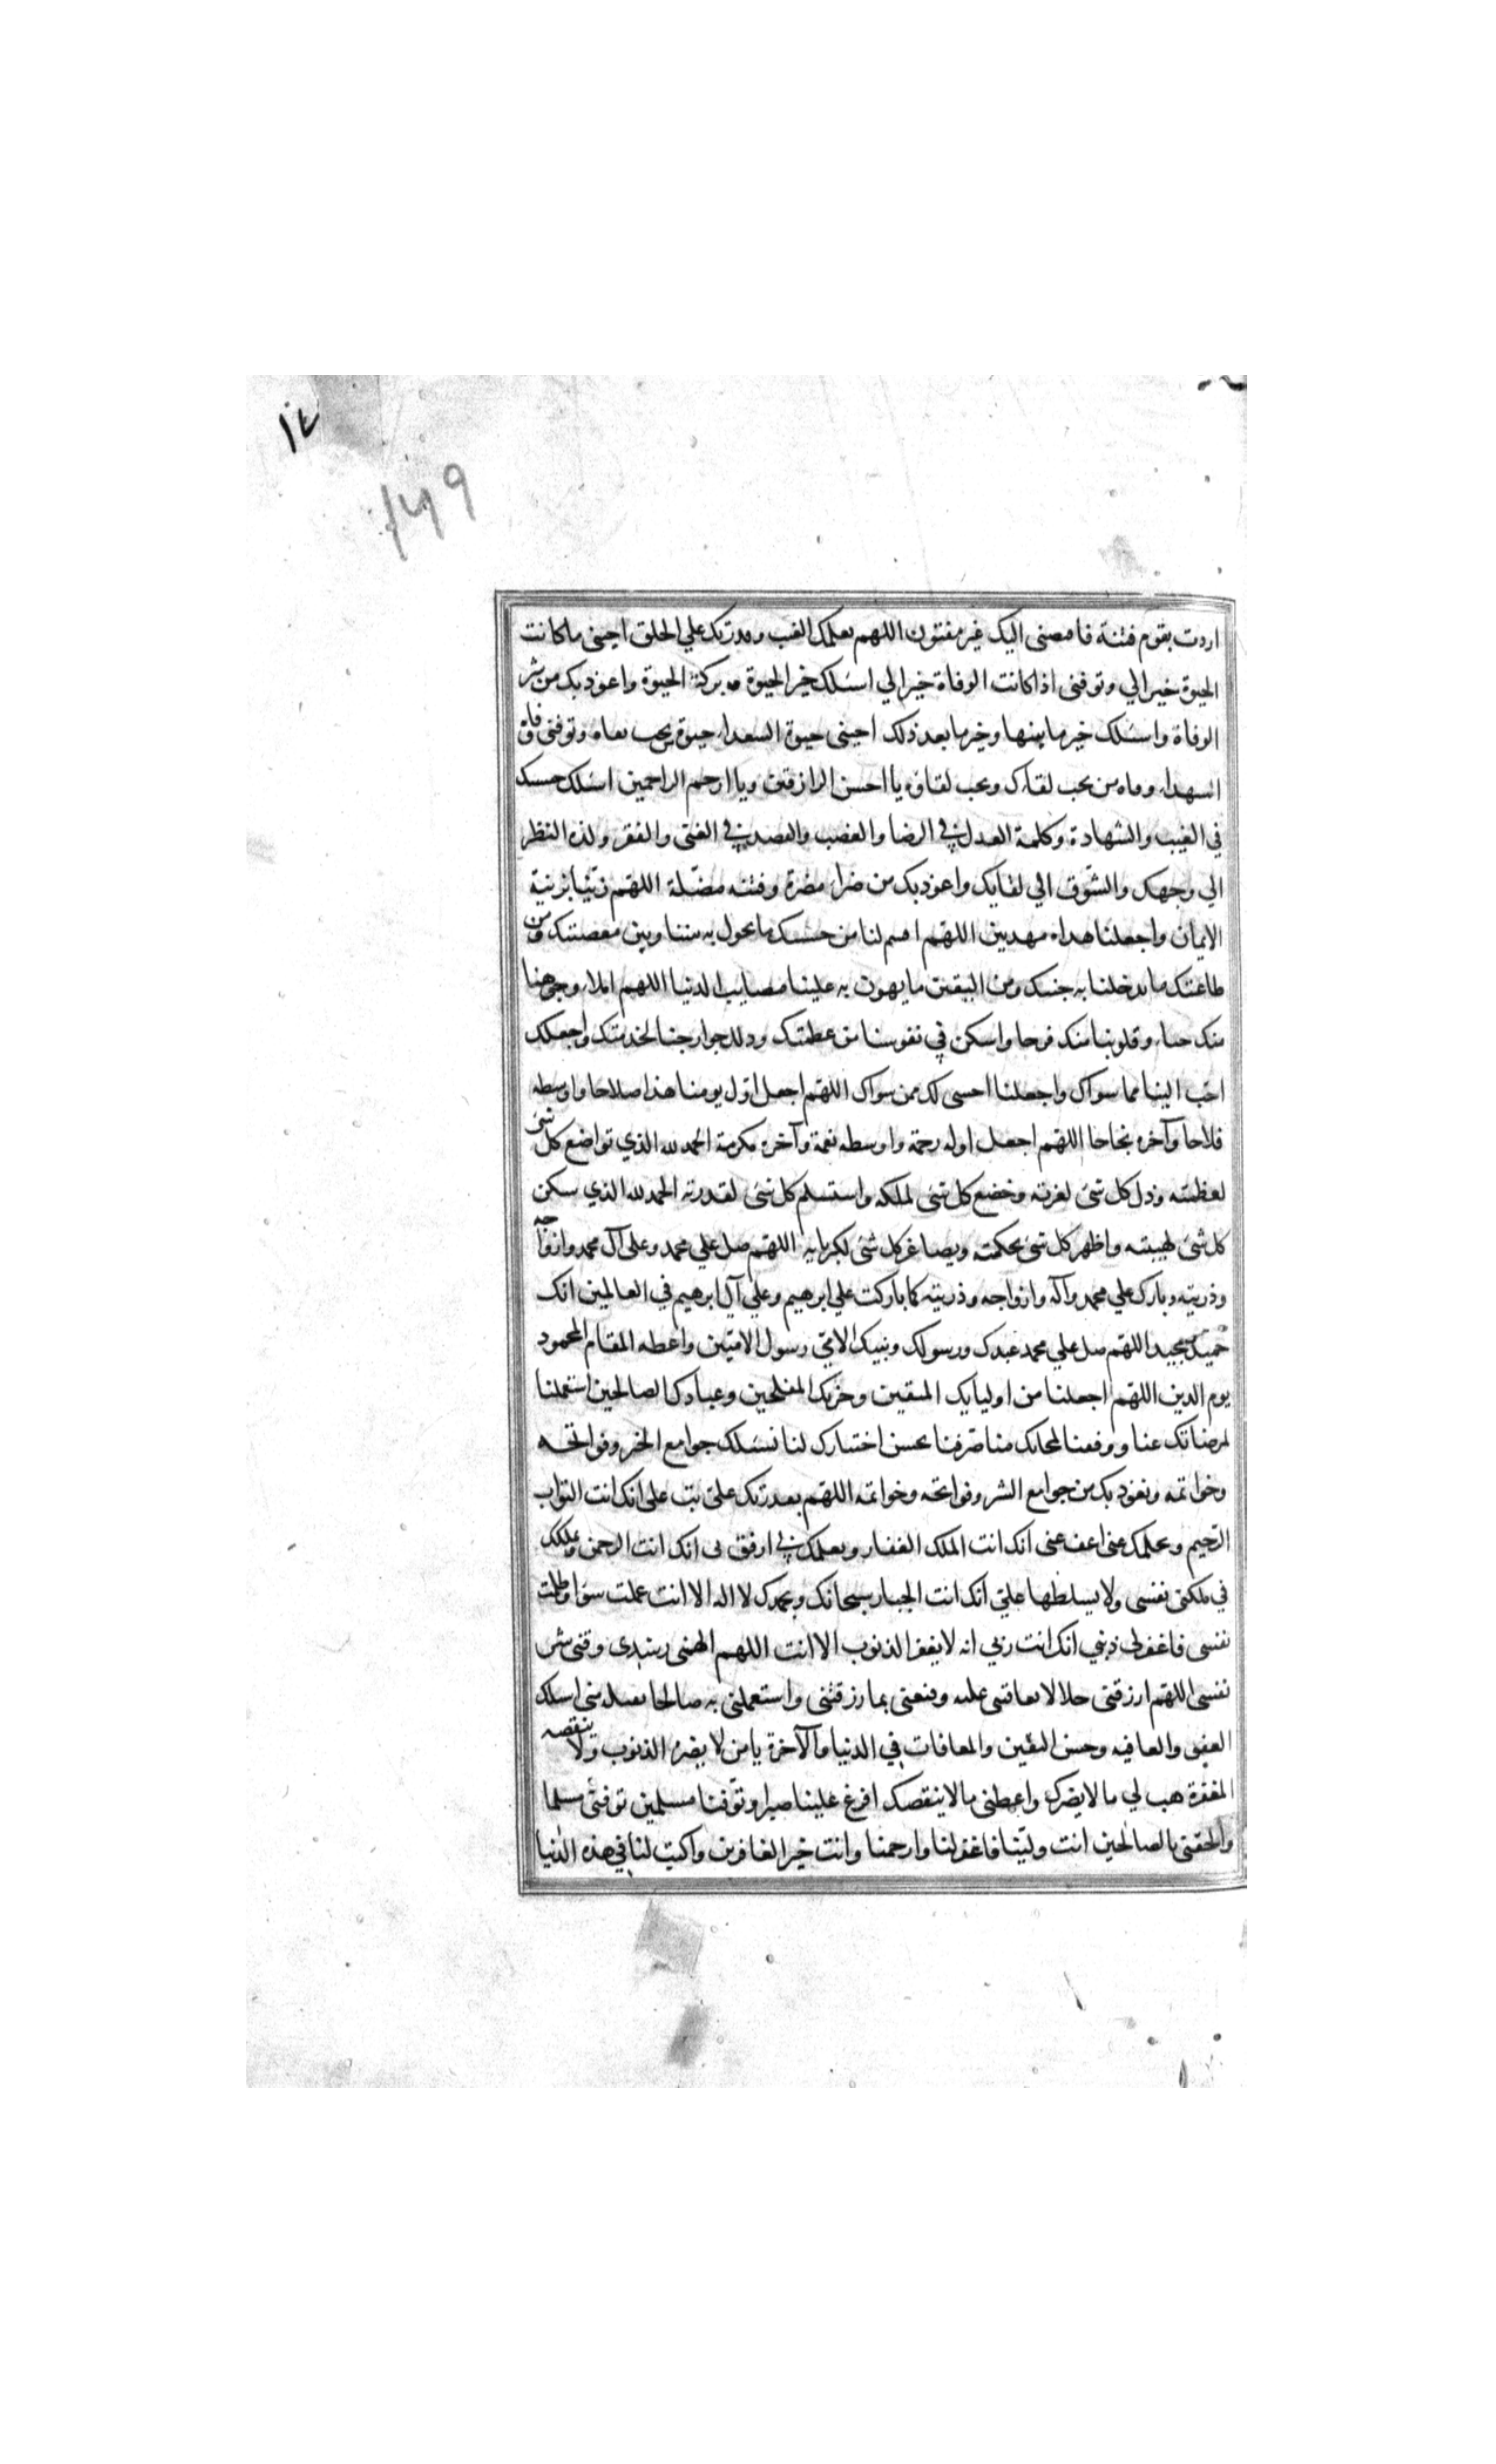 ١٤
١٤٩
اردت بقوم فتنة فاقبضنى اليک غير مفتون اللهم بعلمک الغيب وقدرتک علي الخلق احينى ما كانت
الحيوة خيرا لي وتوفنى اذا كانت الوفاة خيرا لي اسئلک خير الحيوة وبركة الحيوة واعوذ بک من شر
الوفاة واسئلک خير ما بينها وخير ما بعد ذلک احينى حيوة السعداء حيوة من يحب بقاه وتوفنى وفاة
الشهداء وفاه من يحب لقاءک ويحب لقاؤه يا احسن الرازقين ويا ارحم الراحمين اسئلک خشيتک
في الغيب والشهادة وكلمة العدل في الرضا والغضب والقصد في الغنى والفقر ولذه النظر
الي وجهک والشوق الي لقايک واعوذ بک من ضراء مضرة وفتنه مضلة اللهم زينا بزينة
الايمان واجعلنا هداه مهديين اللهم اقسم لنا من خشيتک ما يحول به بيننا وبين معصيتک ومن
طاعتک ما يدخلنا به جنتک ومن اليقين ما يهون به علينا مصايب الدنيا اللهم املاء وجوهنا
منک حياء وقلوبنا منک فرحا واسكن في نفوسنا من عظمتک وذلل جوارحنا لخدمتک واجعلک
احب الينا مما سواک واجعلنا اخشى لک ممن سواک اللهم اجعل اول يومنا هذا صلاحا واوسطه
فلاحا وآخره نجاحا اللهم اجعل اوله رحمة واوسطه نعمة وآخره مكرمة الحمد لله الذي تواضع كل شئ
لعظمته وذل كل شئ لعزته وخضع كل شئ لملكه واستسلم كل شئ لقدرته الحمد لله الذي سكن
كل شئ لهيبته واظهر كل شئ بحكمته ويصاغر كل شئ لكبريايه اللهم صل علي محمد وعلى آل محمد وازواجه
وذريته وبارک علي محمد وآله وازواجه وذريته كما باركت علي ابرهيم وعلي آل ابرهيم في العالمين انک
حميد مجيد اللهم صل علي محمد عبدک ورسولک ونبيک الامي رسول الاميين واعطه المقام المحمود
يوم الدين اللهم اجعلنا من اوليايک المتقين وحزبک المفلحين وعبادک الصالحين استعملنا
لمرضاتک عنا ووفقنا لمحابک منا صرفنا بحسن اختيارک لنا نسئلک جوامع الخير وفواتحه
وخواتمه ونعوذ بک من جوامع الشر وفواتحه وخواتمه اللهم بقدرتک علي تب علي انک انت التواب
الرحيم وبحلمک عنى اعف عنى انک انت الملک الغفار وبعلمک بي ارفق بى انک انت الرحمن وبملكک
في ملكنى نفسى ولا يسلطها علي انک انت الجبار سبحانک وبحمدک لا اله الا انت عملت سؤا وظلمت
نفسى فاغفر لى ذنبي انک انت ربي انه لا يغفر الذنوب الا انت اللهم الهمنى رشدى وقنى شر
نفسى اللهم ارزقنى حلالا لا تعاقبنى عليه وقنعنى بما رزقتنى واستعملنى به صالحا تقبله منى اسئلک
العفو والعافيه وحسن اليقين والمعافات في الدنيا والآخرة يا من لا يضره الذنوب ولا ينقصه
المغفرة هب لي ما لا يضرک واعطنى ما لا ينقصک افرغ علينا صبرا وتوفنا مسلمين توفنى مسلما
والحقنى بالصالحين انت ولينا فاغفر لنا وارحمنا وانت خير الغافرين واكتب لنا في هذه الدنيا